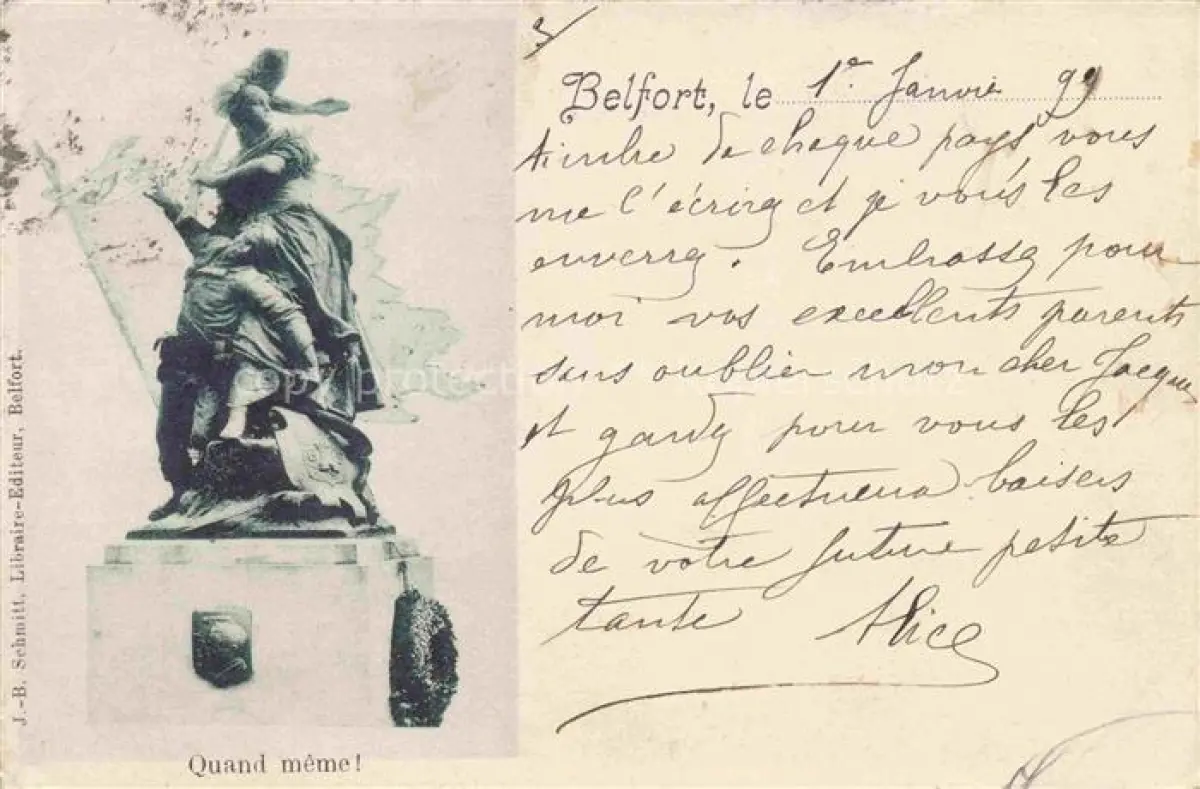 3/
Belfort, le 1er Janvier 99
timbre de chaque pays vous
me l'écrirez et je vous les
enverrez. Embrassez pour
moi vos excellents parents
sans oublier mon cher Jacques
et gardez pour vous les
plus affectueux baisers
de votre future petite
tante Alice
J.-B. Schmitt, Libraire-Editeur, Belfort.
Quand même!